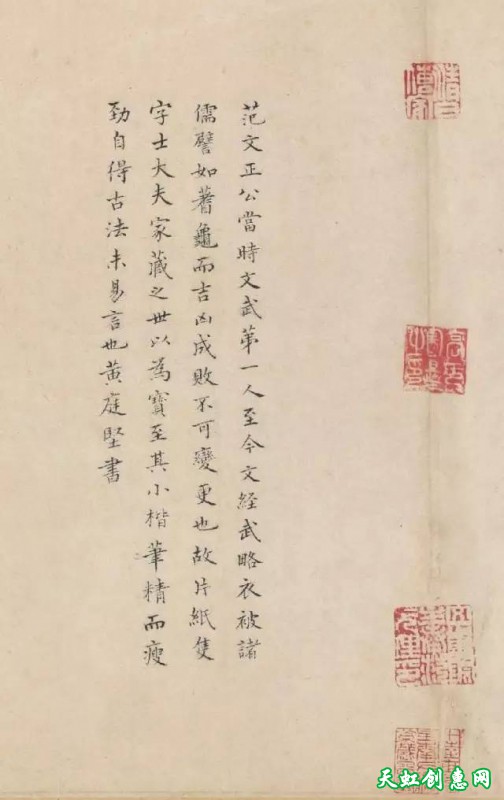 范文正公當時文武第一人至今文經武略衣被諸
儒譬如蓍龜而吉凶成敗不可變更也故片紙隻
字士大夫家藏之世以為寶至其小楷筆精而瘦
勁自得古法未易言也黃庭堅書
天虹创意网